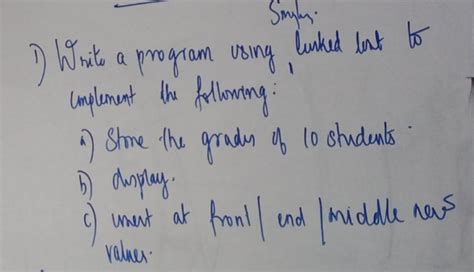 Singly
1) Write a program using linked list to
implement the following:
a) Store the grades of 10 students.
b) display.
c) insert at front / end / middle new
values.